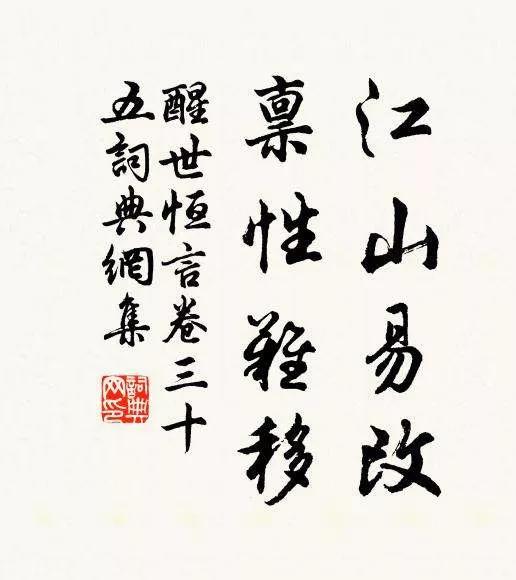 江山易改
稟性難移
醒世恒言卷三十
五詞典網集
詞典
网印